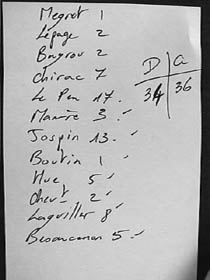 Megret 1
Lepage 2
Bayrou 2
Chirac 7
Le Pen 17.
Mamère 3 ✓
Jospin 13. ✓
Boutin 1 ✓
Hue 5 ✓
Chevt 2 ✓
Laguiller 8 ✓
Besancenon 5. ✓
D G
34 36